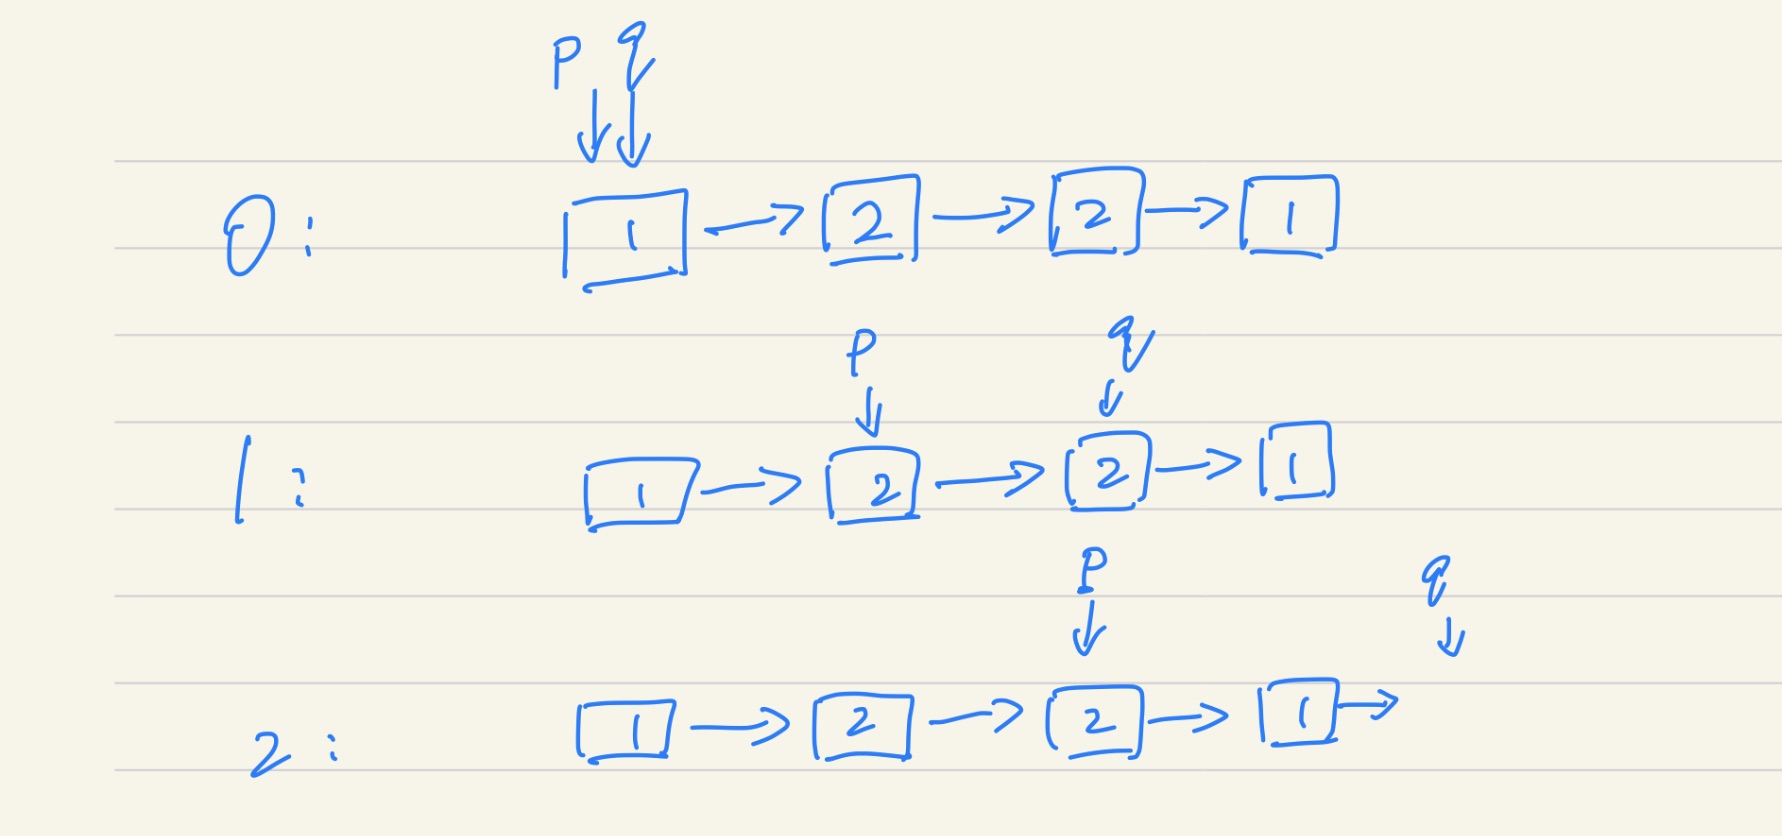 p q
0: 1 → 2 → 2 → 1
p q
1: 1 → 2 → 2 → 1
p q
2: 1 → 2 → 2 → 1 →